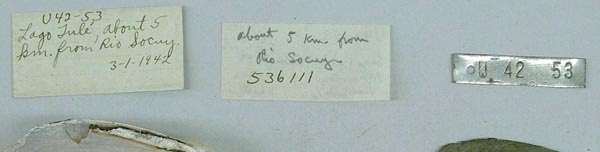 U42-53
Lago Tulé, about 5
km. from Rio Socuy
3-1-1942
about 5 km from
Rio Socuy
536111
U 42 53